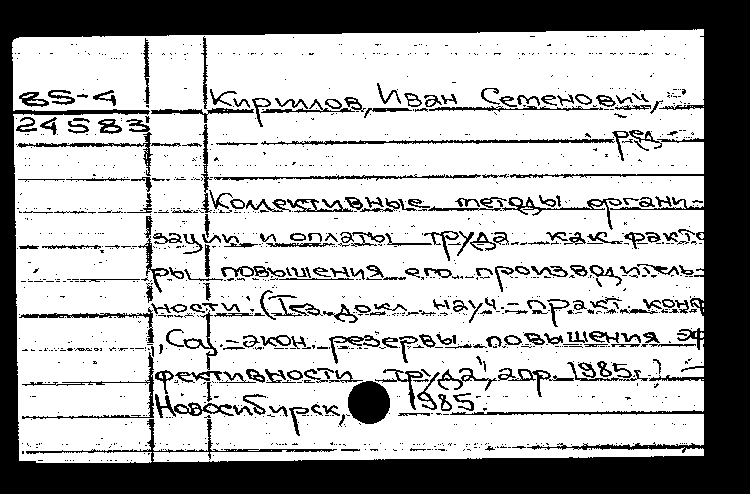 85-4
24583
Кириллов, Иван Семенович,
ред.
Коллективные методы органи-
зации и оплаты труда как факто
ры повышения его производитель-
ности: (Тез. докл. науч.-практ. конф
"Соц.-экон. резервы повышения эф
фективности труда", апр. 1985г.) -
Новосибирск, 1985.